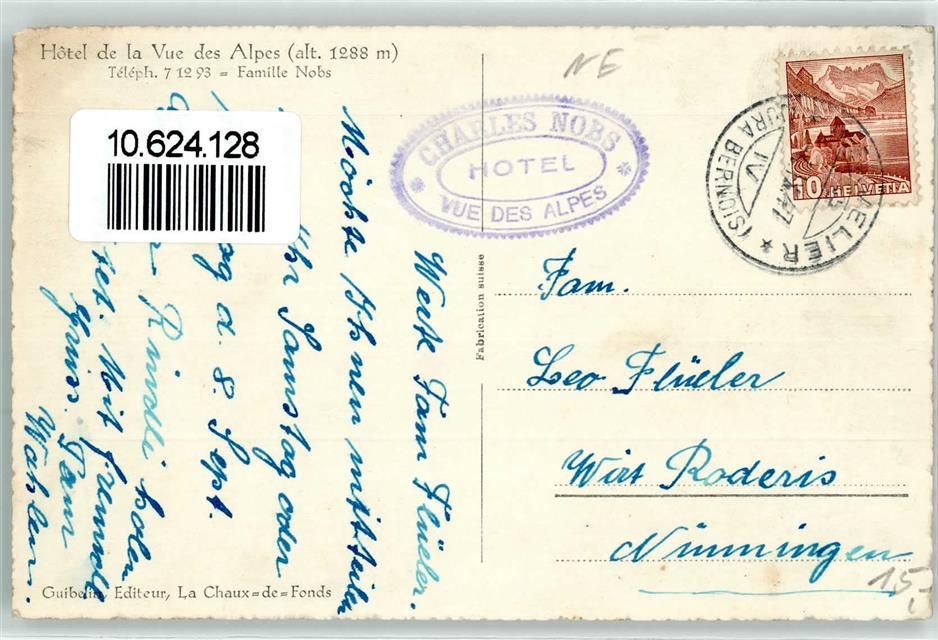 Hôtel de la Vue des Alpes (alt. 1288 m)
Téléph. 7 12 93 = Famille Nobs
10.624.128
NE
CHARLES NOBS
HOTEL
VUE DES ALPES
HELVETIA
(JURA BERNOIS)
Werte Fam Flüeler.
Möchte Ihnen mitteilen
Ihr Samstag oder
d. 8. Sept.
Rindli holen
Mit freundl
Gruss. Fam
Fabrication suisse
Fam.
Leo Flüeler
Wirt Roderis
Nünningen
15,-
Guibelin, Editeur, La Chaux=de=Fonds